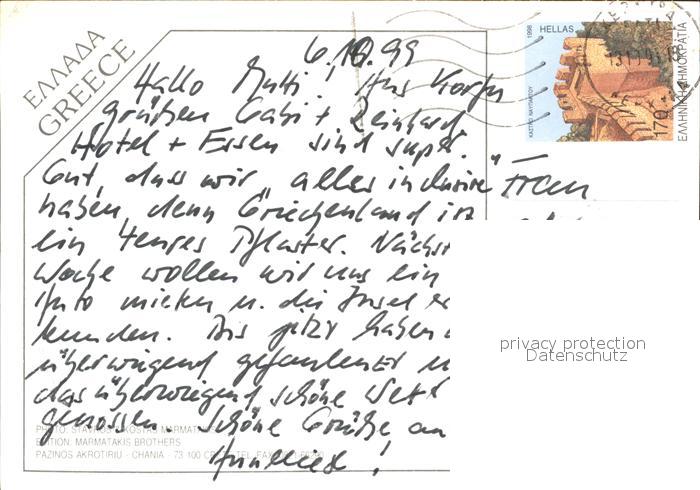 ΕΛΛΑΔΑ
GREECE
6.10.99
Hallo Mutti! Aus Korfu
grüßen Gabi + Reinhard
Hotel + Essen sind super.
Gut, dass wir "alles inclusive"
haben, denn Griechenland ist
ein teures Pflaster. Nächste
Woche wollen wir uns ein
Auto mieten u. die Insel er
kunden. Bis jetzt haben
überwiegend gefaulenzt u
das überwiegend schöne Wett
genossen. Schöne Grüße an
!
Frau
1998 HELLAS
ΚΑΣΤΡΟ ΝΑΥΠΑΚΤΟΥ
170
ΕΛΛΗΝΙΚΗ ΔΗΜΟΚΡΑΤΙΑ
privacy protection
Datenschutz
EDITION: MARMATAKIS BROTHERS
PAZINOS AKROTIRIU - CHANIA - 73 100